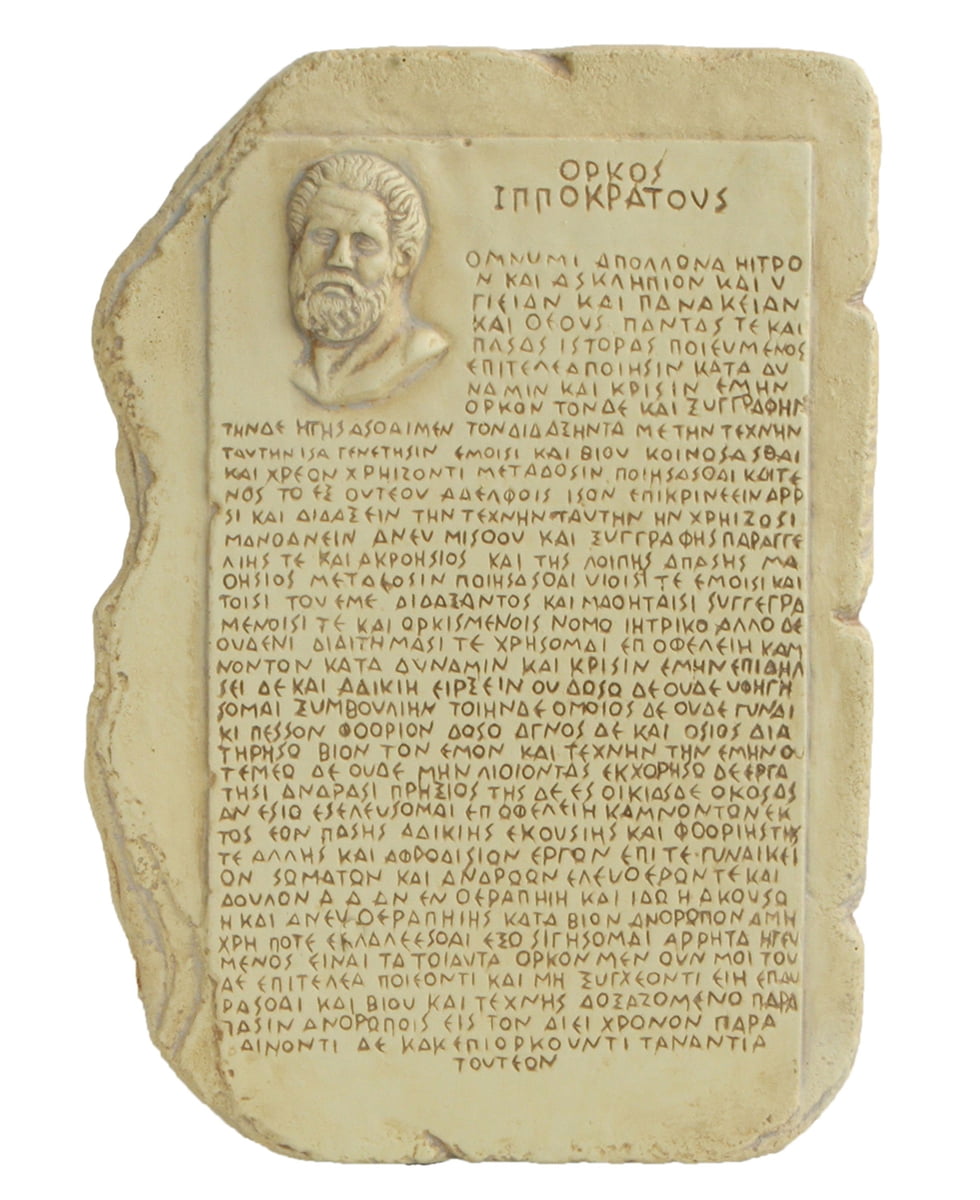 ΟΡΚΟΣ
ΙΠΠΟΚΡΑΤΟΥΣ
ΟΜΝΥΜΙ ΑΠΟΛΛΩΝΑ ΗΙΤΡΟ
Ν ΚΑΙ ΑΣΚΛΗΠΙΟΝ ΚΑΙ Υ
ΓΙΕΙΑΝ ΚΑΙ ΠΑΝΑΚΕΙΑΝ
ΚΑΙ ΘΕΟΥΣ ΠΑΝΤΑΣ ΤΕ ΚΑΙ
ΠΑΣΑΣ ΙΣΤΟΡΑΣ ΠΟΙΕΥΜΕΝΟΣ
ΕΠΙΤΕΛΕΑ ΠΟΙΗΣΙΝ ΚΑΤΑ ΔΥ
ΝΑΜΙΝ ΚΑΙ ΚΡΙΣΙΝ ΕΜΗΝ
ΟΡΚΟΝ ΤΟΝΔΕ ΚΑΙ ΞΥΓΓΡΑΦΗΝ
ΤΗΝΔΕ ΗΓΗΣΑΣΘΑΙ ΜΕΝ ΤΟΝ ΔΙΔΑΞΗΝΤΑ ΜΕ ΤΗΝ ΤΕΧΝΗΝ
ΤΑΥΤΗΝ ΙΣΑ ΓΕΝΕΤΗΣΙΝ ΕΜΟΙΣΙ ΚΑΙ ΒΙΟΥ ΚΟΙΝΟΣΑΣΘΑΙ
ΚΑΙ ΧΡΕΩΝ ΧΡΗΙΖΟΝΤΙ ΜΕΤΑΔΟΣΙΝ ΠΟΙΗΣΑΣΘΑΙ ΚΑΙ ΓΕ
ΝΟΣ ΤΟ ΕΞ ΟΥΤΕΟΥ ΑΔΕΛΦΟΙΣ ΙΣΟΝ ΕΠΙΚΡΙΝΕΕΙΝ ΑΡΡ
ΣΙ ΚΑΙ ΔΙΔΑΞΕΙΝ ΤΗΝ ΤΕΧΝΗΝ ΤΑΥΤΗΝ ΗΝ ΧΡΗΙΖΟΣΙ
ΜΑΝΘΑΝΕΙΝ ΑΝΕΥ ΜΙΣΘΟΥ ΚΑΙ ΞΥΓΓΡΑΦΗΣ ΠΑΡΑΓΓΕ
ΛΙΗΣ ΤΕ ΚΑΙ ΑΚΡΟΗΣΙΟΣ ΚΑΙ ΤΗΣ ΛΟΙΠΗΣ ΑΠΑΣΗΣ ΜΑ
ΘΗΣΙΟΣ ΜΕΤΑΔΟΣΙΝ ΠΟΙΗΣΑΣΘΑΙ ΥΙΟΙΣΙ ΤΕ ΕΜΟΙΣΙ ΚΑΙ
ΤΟΙΣΙ ΤΟΥ ΕΜΕ ΔΙΔΑΞΑΝΤΟΣ ΚΑΙ ΜΑΘΗΤΑΙΣΙ ΣΥΓΓΕΓΡΑ
ΜΕΝΟΙΣΙ ΤΕ ΚΑΙ ΩΡΚΙΣΜΕΝΟΙΣ ΝΟΜΟ ΙΗΤΡΙΚΟ ΑΛΛΟ ΔΕ
ΟΥΔΕΝΙ ΔΙΑΙΤΗΜΑΣΙ ΤΕ ΧΡΗΣΟΜΑΙ ΕΠ ΟΦΕΛΕΙΗ ΚΑΜ
ΝΟΝΤΟΝ ΚΑΤΑ ΔΥΝΑΜΙΝ ΚΑΙ ΚΡΙΣΙΝ ΕΜΗΝ ΕΠΙ ΔΗΛ
ΣΕΙ ΔΕ ΚΑΙ ΑΔΙΚΙΗ ΕΙΡΞΕΙΝ ΟΥ ΔΩΣΩ ΔΕ ΟΥΔΕ ΥΦΗΓΗ
ΣΟΜΑΙ ΞΥΜΒΟΥΛΙΗΝ ΤΟΙΗΝΔΕ ΟΜΟΙΟΣ ΔΕ ΟΥΔΕ ΓΥΝΑΙ
ΚΙ ΠΕΣΣΟΝ ΦΘΟΡΙΟΝ ΔΩΣΟ ΑΓΝΟΣ ΔΕ ΚΑΙ ΟΣΙΟΣ ΔΙΑ
ΤΗΡΗΣΩ ΒΙΟΝ ΤΟΝ ΕΜΟΝ ΚΑΙ ΤΕΧΝΗΝ ΤΗΝ ΕΜΗΝ Ο
ΤΕΜΕΩ ΔΕ ΟΥΔΕ ΜΗΝ ΛΙΘΙΟΝΤΑΣ ΕΚΧΟΡΗΣΩ ΔΕ ΕΡΓΑ
ΤΗΣΙ ΑΝΔΡΑΣΙ ΠΡΗΞΙΟΣ ΤΗΣΔΕ ΕΣ ΟΙΚΙΑΣ ΔΕ ΟΚΟΣΑΣ
ΑΝ ΕΣΙΩ ΕΣΕΛΕΥΣΟΜΑΙ ΕΠ ΩΦΕΛΕΙΗ ΚΑΜΝΟΝΤΩΝ ΕΚ
ΤΟΣ ΕΩΝ ΠΑΣΗΣ ΑΔΙΚΙΗΣ ΕΚΟΥΣΙΗΣ ΚΑΙ ΦΘΟΡΙΗΣ ΤΗΣ
ΤΕ ΑΛΛΗΣ ΚΑΙ ΑΦΡΟΔΙΣΙΩΝ ΕΡΓΩΝ ΕΠΙ ΤΕ ΓΥΝΑΙΚΕΙ
ΩΝ ΣΩΜΑΤΩΝ ΚΑΙ ΑΝΔΡΩΩΝ ΕΛΕΥΘΕΡΩΝ ΤΕ ΚΑΙ
ΔΟΥΛΩΝ Α Δ ΑΝ ΕΝ ΘΕΡΑΠΗΙΗ ΚΑΙ ΙΔΩ Η ΑΚΟΥΣΩ
Η ΚΑΙ ΑΝΕΥ ΘΕΡΑΠΗΙΗΣ ΚΑΤΑ ΒΙΟΝ ΑΝΘΡΩΠΩΝ Α ΜΗ
ΧΡΗ ΠΟΤΕ ΕΚΛΑΛΕΕΣΘΑΙ ΕΞΩ ΣΙΓΗΣΟΜΑΙ ΑΡΡΗΤΑ ΗΓΕΥ
ΜΕΝΟΣ ΕΙΝΑΙ ΤΑ ΤΟΙΑΥΤΑ ΟΡΚΟΝ ΜΕΝ ΟΥΝ ΜΟΙ ΤΟΥ
ΔΕ ΕΠΙΤΕΛΕΑ ΠΟΙΕΟΝΤΙ ΚΑΙ ΜΗ ΞΥΓΧΕΟΝΤΙ ΕΙΗ ΕΠΑΥ
ΡΑΣΘΑΙ ΚΑΙ ΒΙΟΥ ΚΑΙ ΤΕΧΝΗΣ ΔΟΞΑΖΟΜΕΝΟ ΠΑΡΑ
ΠΑΣΙΝ ΑΝΘΡΩΠΟΙΣ ΕΙΣ ΤΟΝ ΑΙΕΙ ΧΡΟΝΟΝ ΠΑΡΑ
ΔΙΝΟΝΤΙ ΔΕ ΚΑΚ ΕΠΙΟΡΚΟΥΝΤΙ ΤΑΝΑΝΤΙΑ
ΤΟΥΤΕΩΝ